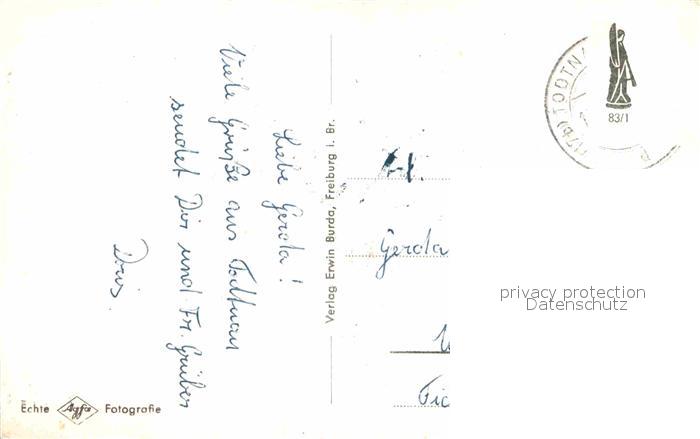 Liebe Gerda!
Viele Grüße aus Todtnau
sendet Dir und Fr. Gruber
Doris.
Echte Agfa Fotografie
Verlag Erwin Burda, Freiburg i. Br.
(17b) TODTNA
83/1
Gerda
privacy protection
Datenschutz